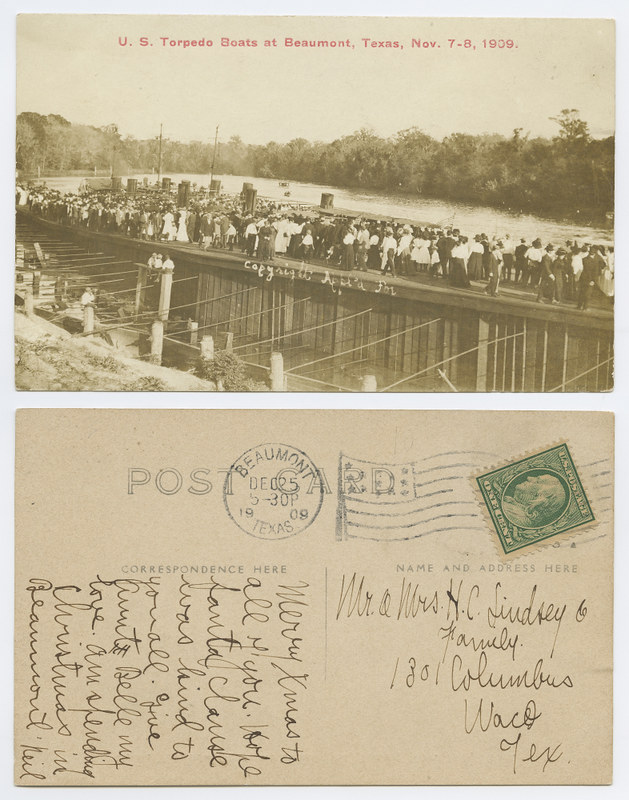 U. S. Torpedo Boats at Beaumont, Texas, Nov. 7-8, 1909.
Copyright
POST CARD
BEAUMONT
DEC 25
5-30P
1909
TEXAS
U.S. POSTAGE
CORRESPONDENCE HERE
NAME AND ADDRESS HERE
Merry Xmas to
all of you. Hope
Santa Clause
was kind to
you all. Give
Aunt Belle my
love. Am spending
Christmas in
Beaumont. Neil
Mr. & Mrs. H. C. Lindsey &
Family.
1301 Columbus
Waco
Tex.